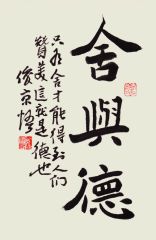 舍與德
只有舍才能得到人们
赞美這就是德也
俊京悟